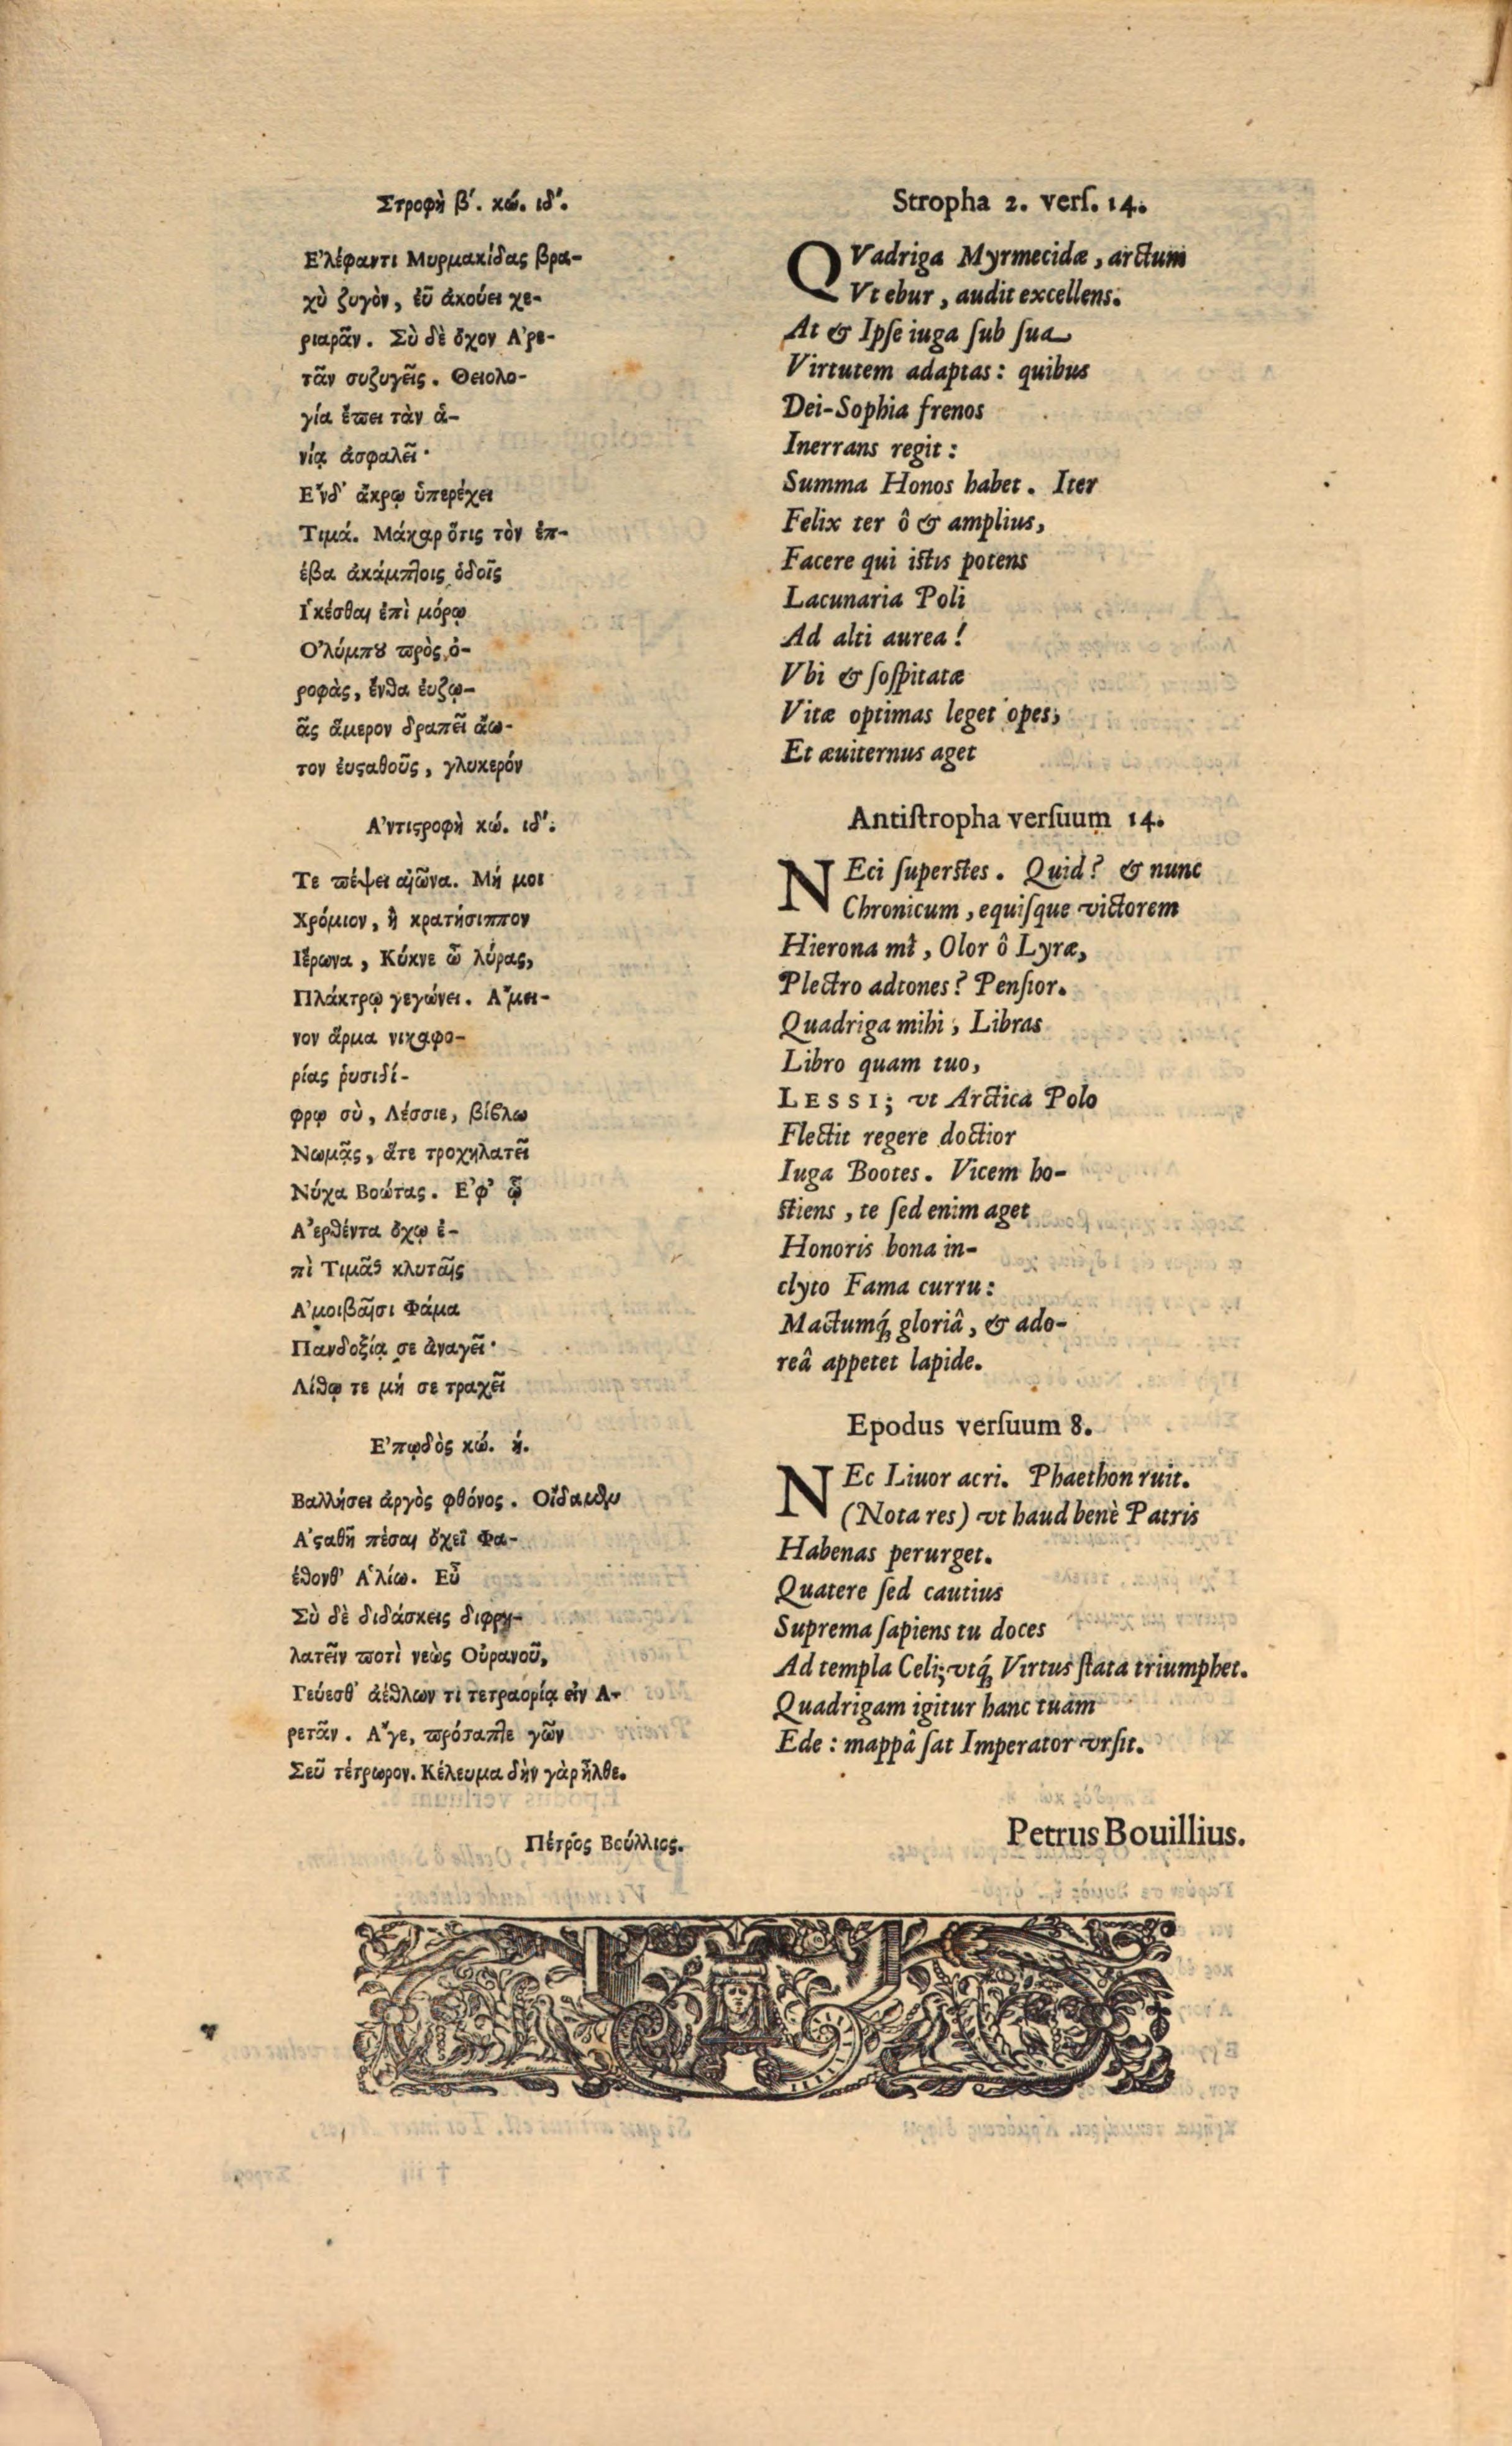 Στροφὴ β′. κώ. ιδ′.
Ε᾿λέφαντι Μυρμακίδας βρα-
χὺ ζυγὸν, ἐῦ ἀκούει χε-
ριαρᾶν. Σὺ δὲ ὄχον Α᾿ρε-
τᾶν συζυγεῖς. Θειολο-
γία ἕπει τὰν ἁ-
νίᾳ ἀσφαλεῖ·
Ε῎νδ᾿ ἄκρῳ ὑπερέχει
Τιμά. Μάκαρ ὅτις τὸν ἐπ-
έβα ἀκάμπτοις ὁδοῖς
Ι῾κέσθαι ἐπὶ μόρῳ
Ο᾿λύμπου πρὸς ὀ-
ροφὰς, ἔνθα ἐυζω-
ᾶς ἅμερον δραπεῖ ἄω-
τον ἐυσταθοῦς, γλυκερόν
Α᾿ντιστροφὴ κώ. ιδ′.
Τε πέψει αἰῶνα. Μή μοι
Χρόμιον, ἢ κρατήσιππον
Ιέ῾ρωνα, Κύκνε ὦ λύρας,
Πλάκτρῳ γεγώνει. Α῎μει-
νον ἅρμα νικαφο-
ρίας ῥυσιδί-
φρῳ σὺ, Λέσσιε, βίβλω
Νωμᾷς, ἅτε τροχηλατεῖ
Νύχα Βοώτας. Ε᾿φ᾿ ᾧ
Α᾿ερθέντα ὄχῳ ἐ-
πὶ Τιμᾶς κλυταῖς
Α᾿μοιβαῖσι Φάμα
Πανδοξίᾳ σε ἀναγεῖ·
Λίθῳ τε μή σε τραχεῖ
Ε᾿πῳδὸς κώ. ή.
Βαλλήσει ἀργὸς φθόνος. Οἴδαμθυ
Α᾿σταθῆ πέσαι ὄχεϊ Φα-
έθονθ᾿ Α῾λίω. Εὖ
Σὺ δὲ διδάσκεις διφρη-
λατεῖν ποτὶ νεὼς Οὐρανοῦ,
Γεύεσθ᾿ ἀέθλων τι τετραορίᾳ εἰν Α᾿-
ρετᾶν. Α῎γε, πρόσαπτε γῶν
Σεῦ τέτρωρον. Κέλευμα δὴν γὰρ ἦλθε.
Πέτρος Βούλλιος.
Stropha 2. verſ. 14.
QVadriga Myrmecidæ, arctum
Vt ebur, audit excellens.
At & Ipſe iuga ſub ſua
Virtutem adaptas: quibus
Dei-Sophia frenos
Inerrans regit:
Summa Honos habet. Iter
Felix ter ô & amplius,
Facere qui istis potens
Lacunaria Poli
Ad alti aurea!
Vbi & ſoſpitatæ
Vitæ optimas leget opes,
Et æuiternus aget
Antiſtropha verſuum 14.
NEci ſuperſtes. Quid? & nunc
Chronicum, equiſque victorem
Hierona mî, Olor ô Lyræ,
Plectro adtones? Penſior.
Quadriga mihi, Libras
Libro quam tuo,
LESSI; vt Arctica Polo
Flectit regere doctior
Iuga Bootes. Vicem ho-
ſtiens, te ſed enim aget
Honoris bona in-
clyto Fama curru:
Mactumq́; gloriâ, & ado-
reâ appetet lapide.
Epodus verſuum 8.
NEc Liuor acri. Phaethon ruit.
(Nota res) vt haud benè Patris
Habenas perurget.
Quatere ſed cautius
Suprema ſapiens tu doces
Ad templa Celi; vtq́; Virtus ſtata triumphet.
Quadrigam igitur hanc tuam
Ede: mappâ ſat Imperator vrſit.
Petrus Bouillius.